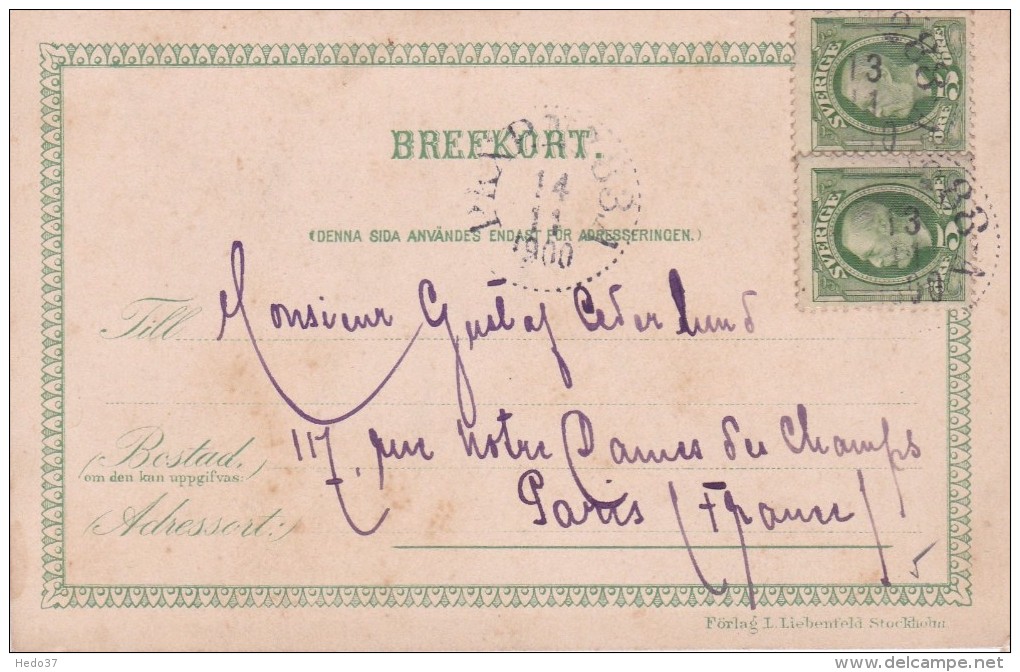 SVERIGE
FEM 5 ÖRE
13
11
BREFKORT.
14
11
1900
(DENNA SIDA ANVÄNDES ENDAST FÖR ADRESSERINGEN.)
SVERIGE
5 ÖRE
13
Till Monsieur Gustaf Cederlund
117. rue Notre Dames des Champs
(Bostad,
om den kan uppgifvas:)
Paris (France)
(Adressort:)
Förlag I. Liebenfeld Stockholm
Hedo37
www.delcampe.net